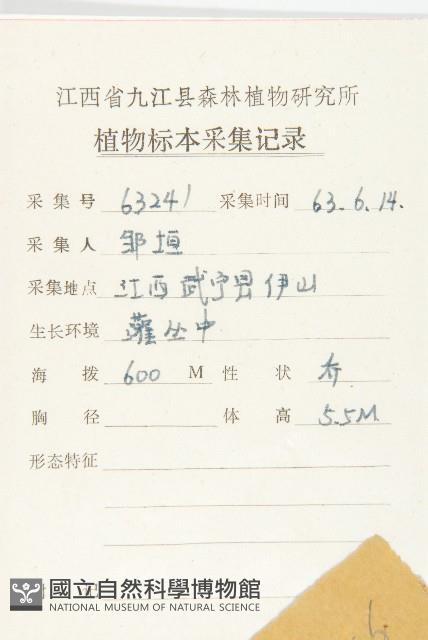 江西省九江县森林植物研究所
植物标本采集记录
采集号 63241 采集时间 63.6.14.
采集人 邹垣
采集地点 江西武宁县伊山
生长环境 灌丛中
海拨 600 M 性状 乔
胸径 体高 5.5M
形态特征
國立自然科學博物館
NATIONAL MUSEUM OF NATURAL SCIENCE